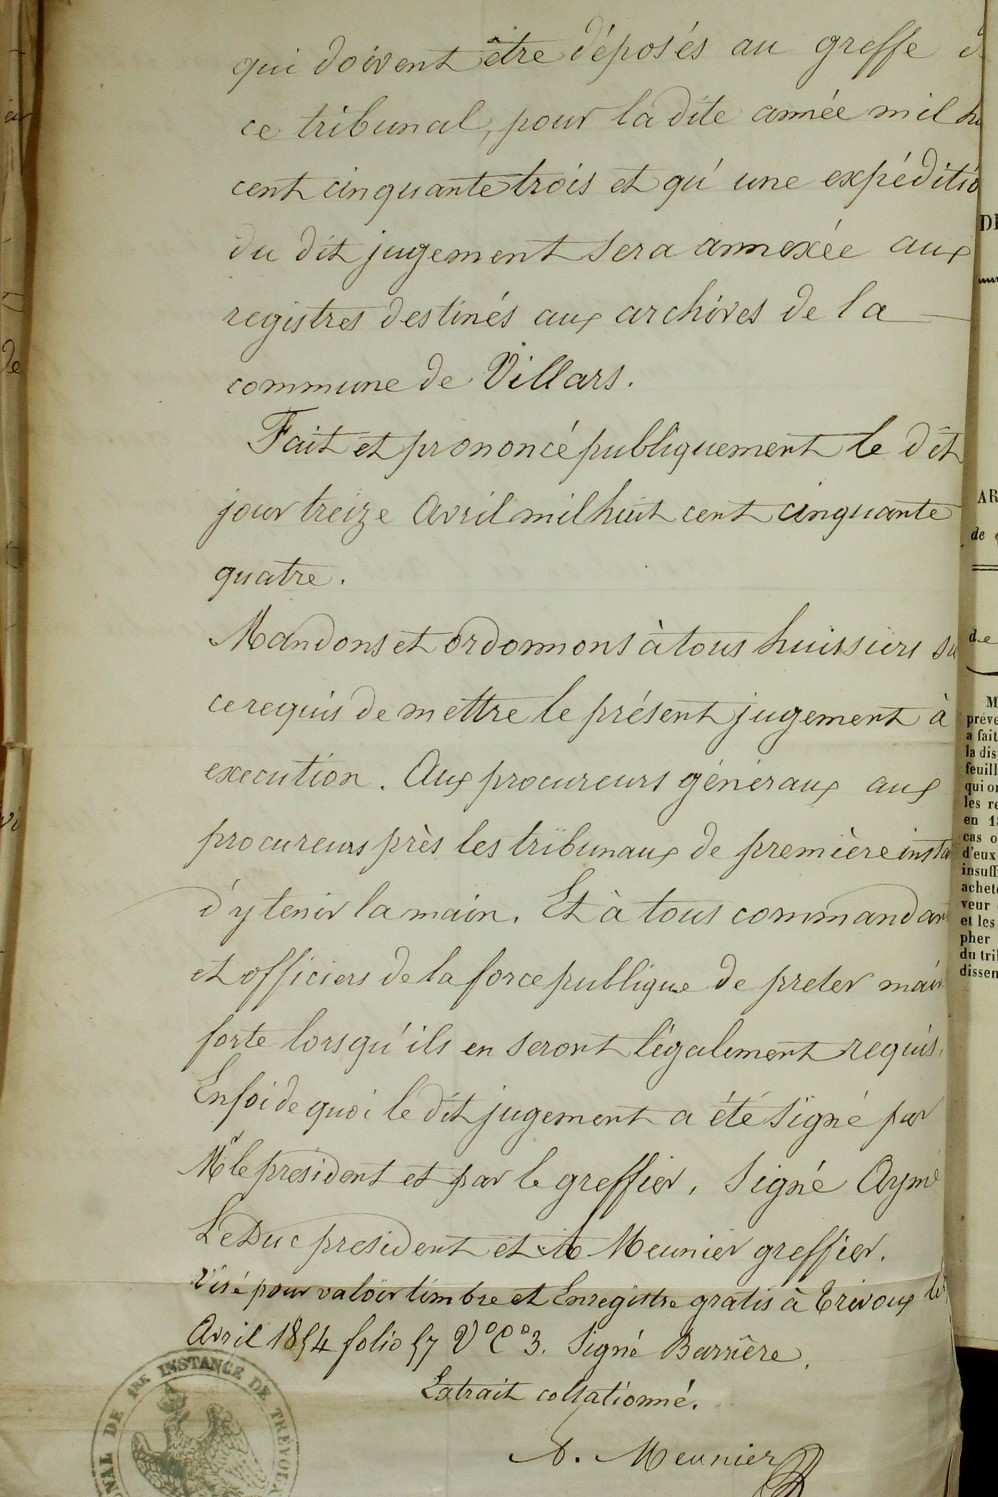 qui doivent être déposés au greffe d
ce tribunal, pour la dite année mil hu
cent cinquante trois et qu'une expéditio
du dit jugement sera annexée aux
registres destinés aux archives de la
commune de Villars.
Fait et prononcé publiquement le dit
jour treize Avril mil huit cent cinquante
quatre.
Mandons et ordonnons à tous huissiers su
ce requis de mettre le présent jugement à
execution. Aux procureurs généraux aux
procureurs près les tribunaux de première insta
d'y tenir la main. Et à tous commandan
et officiers de la force publique de preter main
forte lorsqu'ils en seront légalement requis.
En foi de quoi le dit jugement a été signé par
Mr le president et par le greffier. Signé Aymé
LeDuc president et Meunier greffier.
Visé pour valoir timbre et Enregistre gratis à Trévoux le
Avril 1854 folio 57 Vo Co 3. Signé Barrière.
Extrait collationné.
A. Meunier
NAL DE 1re INSTANCE DE TRÉVOU
DE
AR
de
de
M
préve
a fait
la dis
feuill
qui on
les re
en 18
cas o
d'eux
insuff
achet
veur
et les
pher
du tri
dissen